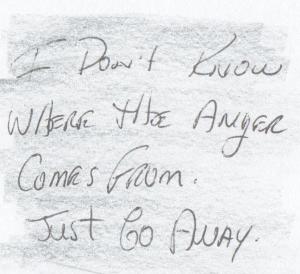 I Don't Know
Where the Anger
Comes From.
Just Go Away.